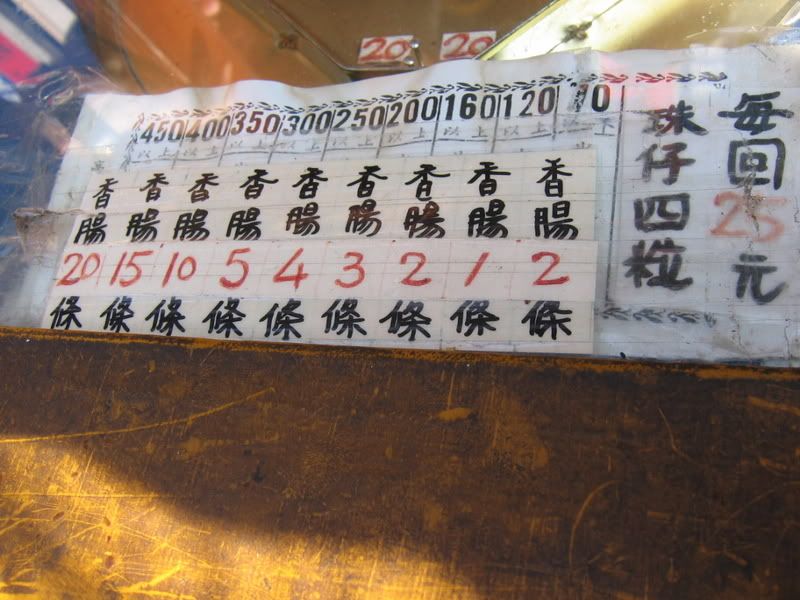 20 20
每回25元
珠仔四粒
70以下香腸2條
120以上香腸1條
160以上香腸2條
200以上香腸3條
250以上香腸4條
300以上香腸5條
350以上香腸10條
400以上香腸15條
450以上香腸20條